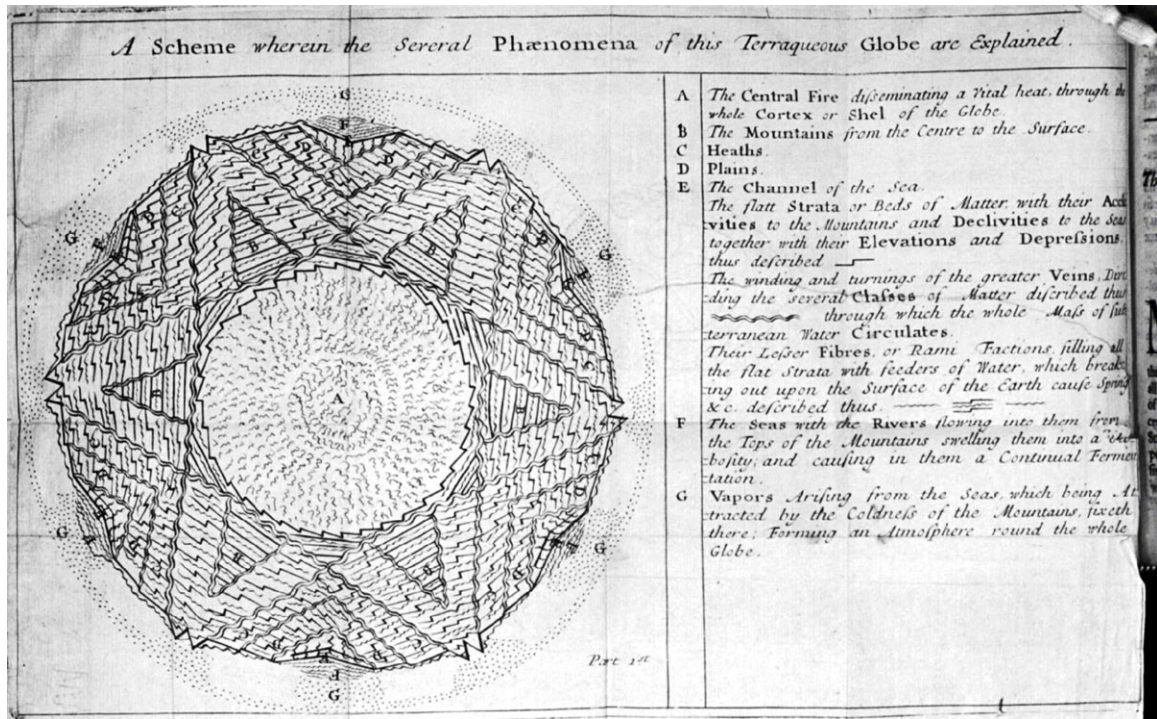 A Scheme wherein the Several Phænomena of this Terraqueous Globe are Explained.
A The Central Fire diſseminating a Vital heat, through the
whole Cortex or Shel of the Globe.
B The Mountains from the Centre to the Surface.
C Heaths.
D Plains.
E The Channel of the Sea.
The flatt Strata or Beds of Matter, with their Accli
vities to the Mountains and Declivities to the Seas
together with their Elevations and Depreſsions,
thus deſcribed
The winding and turnings of the greater Veins, Divi
ding the ſeveral Claſses of Matter diſcribed thus
through which the whole Maſs of ſub
terranean Water Circulates.
Their Leſser Fibres, or Rami Factions, filling all
the flat Strata with feeders of Water, which break
ing out upon the Surface of the Earth cauſe Spring
& c. deſcribed thus.
F The Seas with the Rivers flowing into them from
the Tops of the Mountains swelling them into a
boſity, and cauſing in them a Continual Fermen
tation.
G Vapors Ariſing from the Seas, which being At
tracted by the Coldneſs of the Mountains, fixeth
there; Forming an Atmoſphere round the whole
Globe.
Part 1st
G
F
E
C
D
D
B
B
G
G
B
A
B
G
G
B
B
F
G